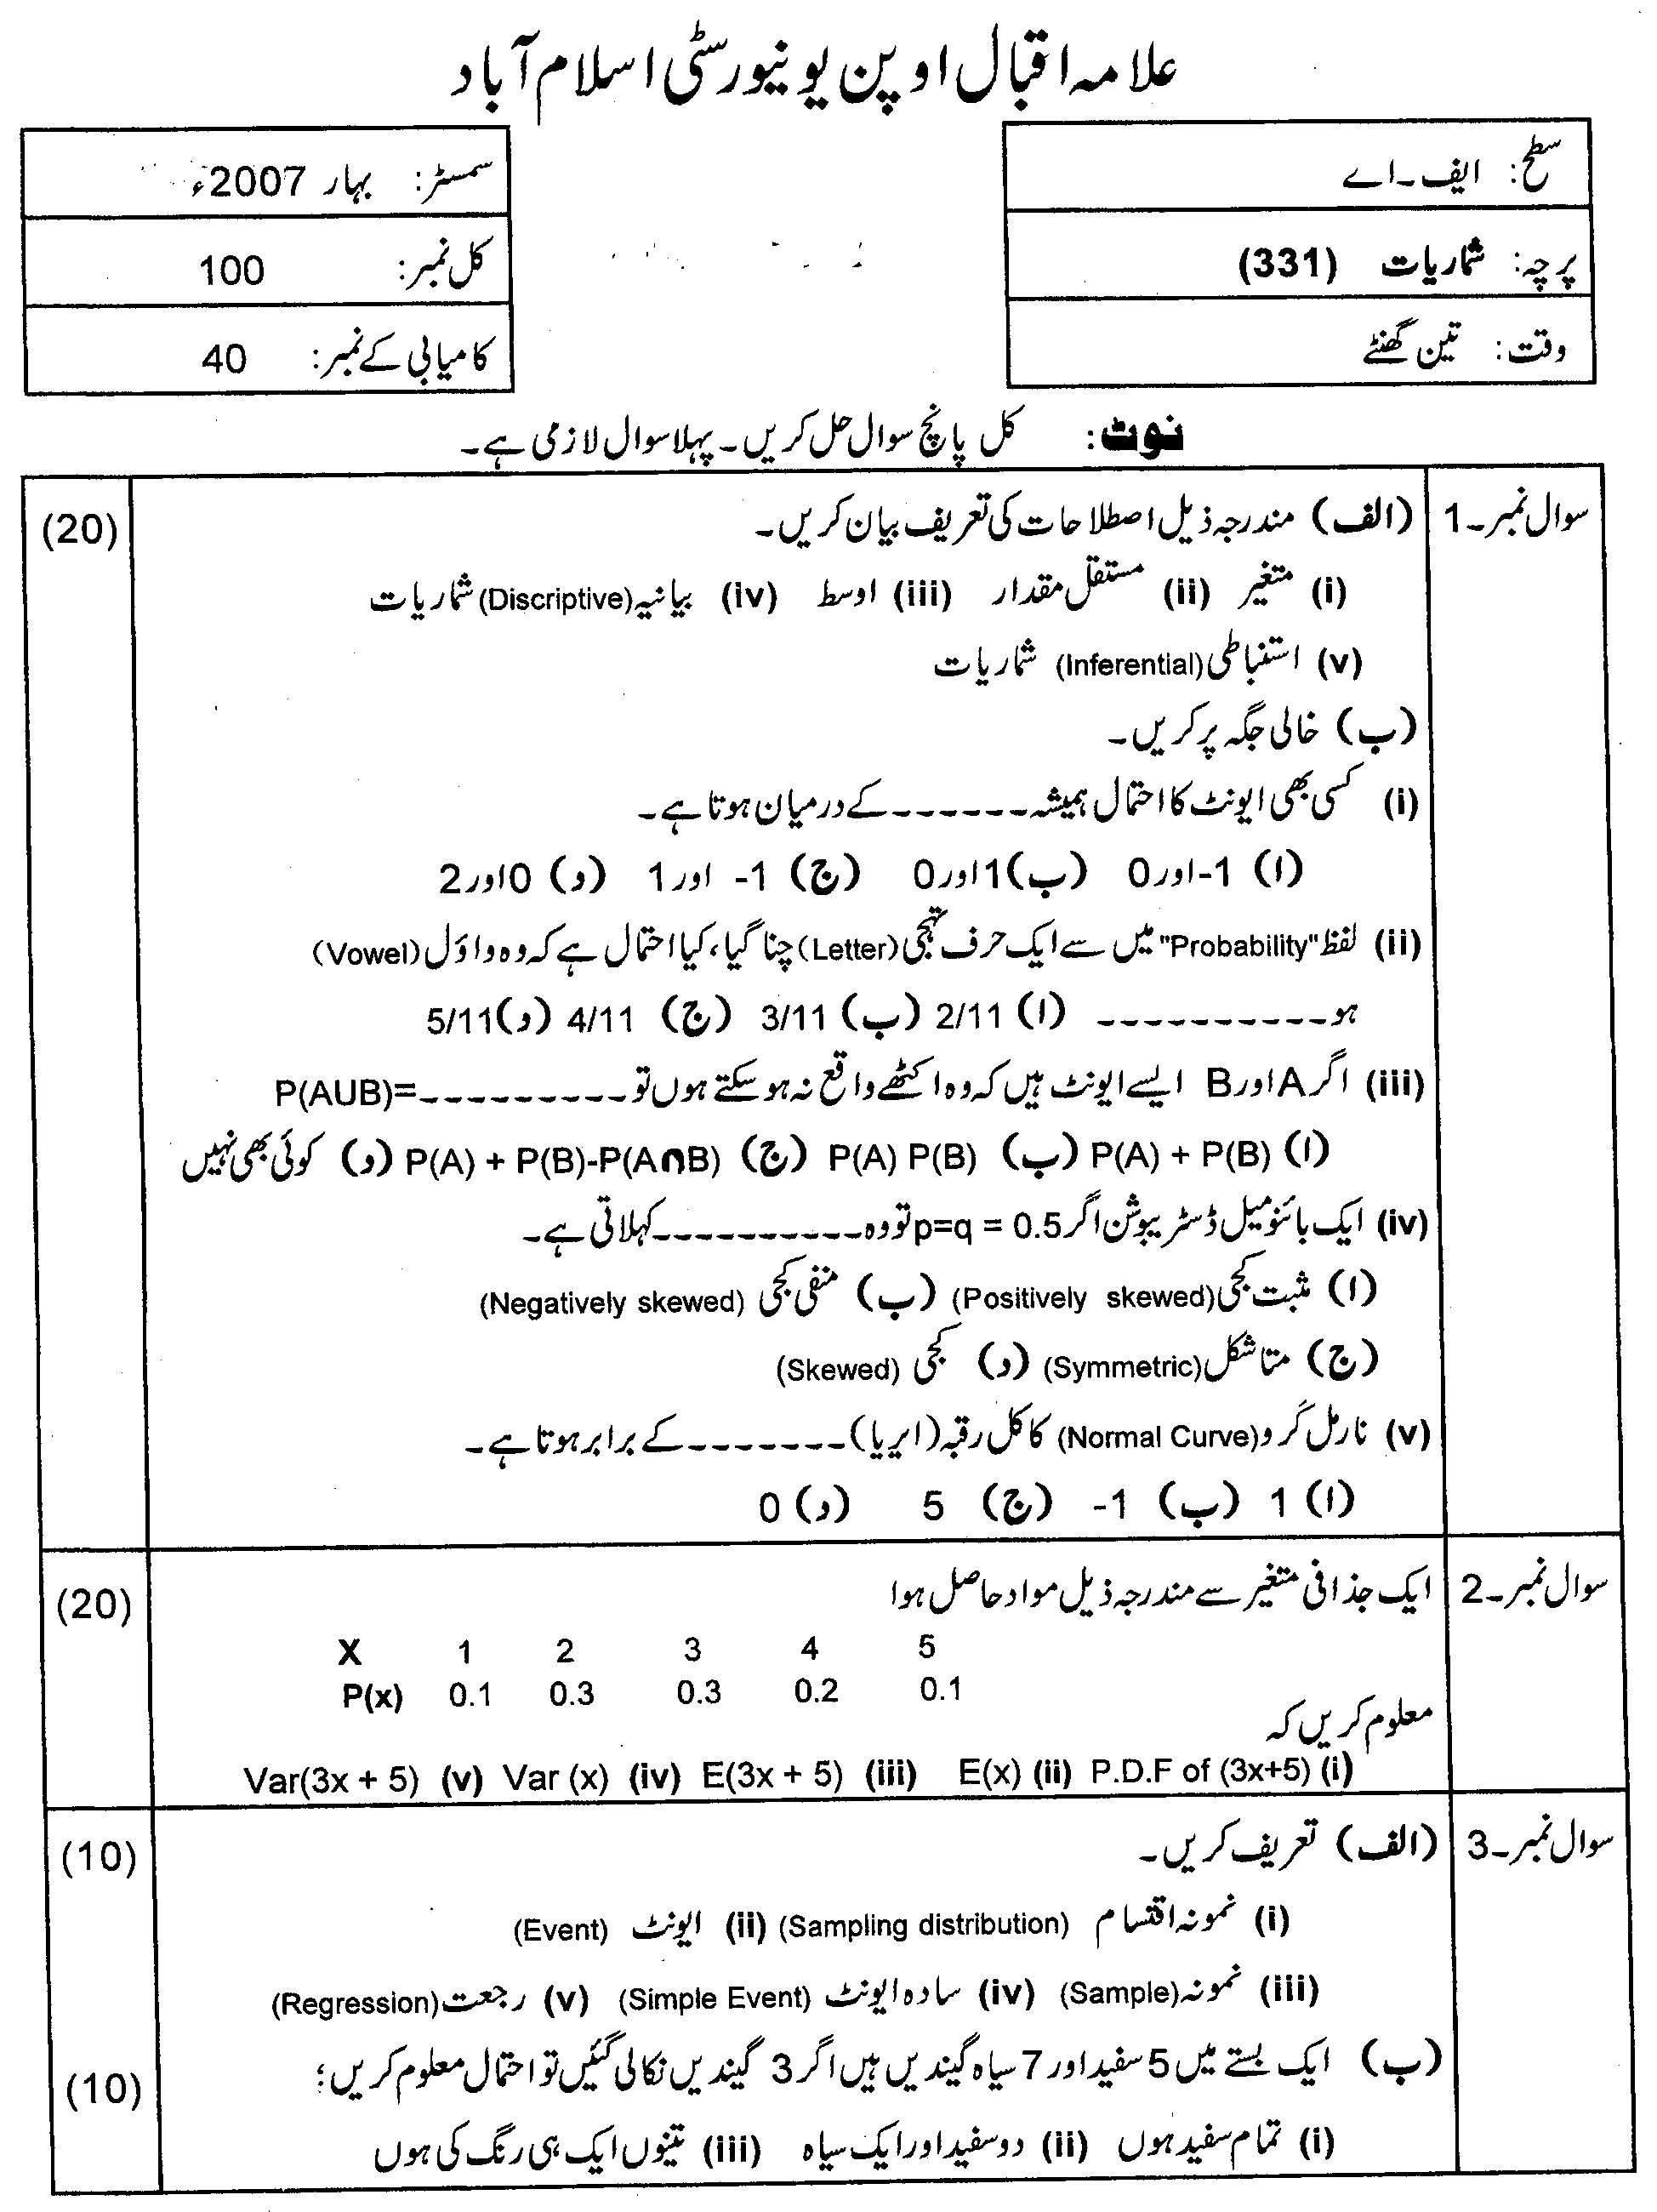 علامہ اقبال اوپن یونیورسٹی اسلام آباد
سطح: ایف۔اے
پرچہ: شماریات (331)
وقت: تین گھنٹے
سمسٹر: بہار 2007ء
کل نمبر: 100
کامیابی کے نمبر: 40
نوٹ: کل پانچ سوال حل کریں۔ پہلا سوال لازمی ہے۔
سوال نمبر۔1 (الف) مندرجہ ذیل اصطلاحات کی تعریف بیان کریں۔ (20)
(i) متغیر (ii) مستقل مقدار (iii) اوسط (iv) بیانیہ (Discriptive) شماریات
(v) استنباطی (Inferential) شماریات
(ب) خالی جگہ پر کریں۔
(i) کسی بھی ایونٹ کا احتمال ہمیشہ ------ کے درمیان ہوتا ہے۔
(ا) 1- اور 0 (ب) 1 اور 0 (ج) 1- اور 1 (د) 0 اور 2
(ii) لفظ "Probability" میں سے ایک حرف تہجی (Letter) چنا گیا، کیا احتمال ہے کہ وہ واؤل (Vowel)
ہو ---------- (ا) 2/11 (ب) 3/11 (ج) 4/11 (د) 5/11
(iii) اگر A اور B ایسے ایونٹ ہیں کہ وہ اکٹھے واقع نہ ہو سکتے ہوں تو ---------- =P(AUB)
(ا) P(A) + P(B) (ب) P(A) P(B) (ج) P(A) + P(B)-P(A∩B) (د) کوئی بھی نہیں
(iv) ایک بائنومیل ڈسٹریبیوشن اگر p=q = 0.5 تو وہ ---------- کہلاتی ہے۔
(ا) مثبت کجی (Positively skewed) (ب) منفی کجی (Negatively skewed)
(ج) متاشکل (Symmetric) (د) کجی (Skewed)
(v) نارمل کرو (Normal Curve) کا کل رقبہ (ایریا) ------- کے برابر ہوتا ہے۔
(ا) 1 (ب) 1- (ج) 5 (د) 0
سوال نمبر۔2 ایک جذافی متغیر سے مندرجہ ذیل مواد حاصل ہوا (20)
X 1 2 3 4 5
P(x) 0.1 0.3 0.3 0.2 0.1
معلوم کریں کہ
(i) P.D.F of (3x+5) (ii) E(x) (iii) E(3x + 5) (iv) Var (x) (v) Var(3x + 5)
سوال نمبر۔3 (الف) تعریف کریں۔ (10)
(i) نمونہ اقتسام (Sampling distribution) (ii) ایونٹ (Event)
(iii) نمونہ (Sample) (iv) سادہ ایونٹ (Simple Event) (v) رجعت (Regression)
(ب) ایک بستے میں 5 سفید اور 7 سیاہ گیندیں ہیں اگر 3 گیندیں نکالی گئیں تو احتمال معلوم کریں؛ (10)
(i) تمام سفید ہوں (ii) دو سفید اور ایک سیاہ (iii) تینوں ایک ہی رنگ کی ہوں